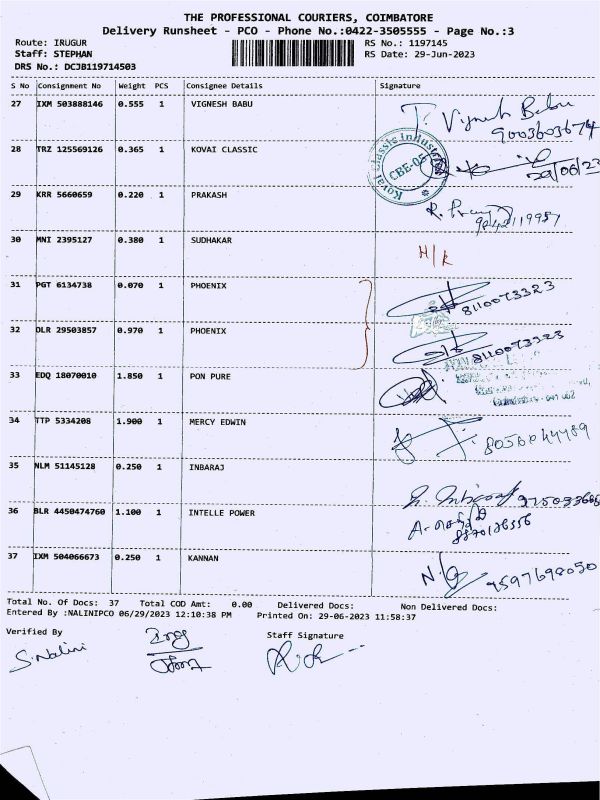 THE PROFESSIONAL COURIERS, COIMBATORE
Delivery Runsheet - PCO - Phone No.:0422-3505555 - Page No.:3
Route: IRUGUR RS No.: 1197145
Staff: STEPHAN RS Date: 29-Jun-2023
DRS No.: DCJB119714503
S No Consignment No Weight PCS Consignee Details Signature
27 IXM 503888146 0.555 1 VIGNESH BABU T. Vignesh Babu
9003603674
28 TRZ 125569126 0.365 1 KOVAI CLASSIC Kovai Classic Industries CBE-05
29/06/23
29 KRR 5660659 0.220 1 PRAKASH
30 MNI 2395127 0.380 1 SUDHAKAR H/R
31 PGT 6134738 0.070 1 PHOENIX 8110073323
32 DLR 29503857 0.970 1 PHOENIX 8110073323
33 EDQ 18070010 1.850 1 PON PURE
34 TTP 5334208 1.900 1 MERCY EDWIN 8056044489
35 NLM 51145128 0.250 1 INBARAJ
36 BLR 4450474760 1.100 1 INTELLE POWER
37 IXM 504066673 0.250 1 KANNAN 9597698050
Total No. Of Docs: 37 Total COD Amt: 0.00 Delivered Docs: Non Delivered Docs:
Entered By :NALINIPCO 06/29/2023 12:10:38 PM Printed On: 29-06-2023 11:58:37
Verified By Staff Signature
S.Nalini